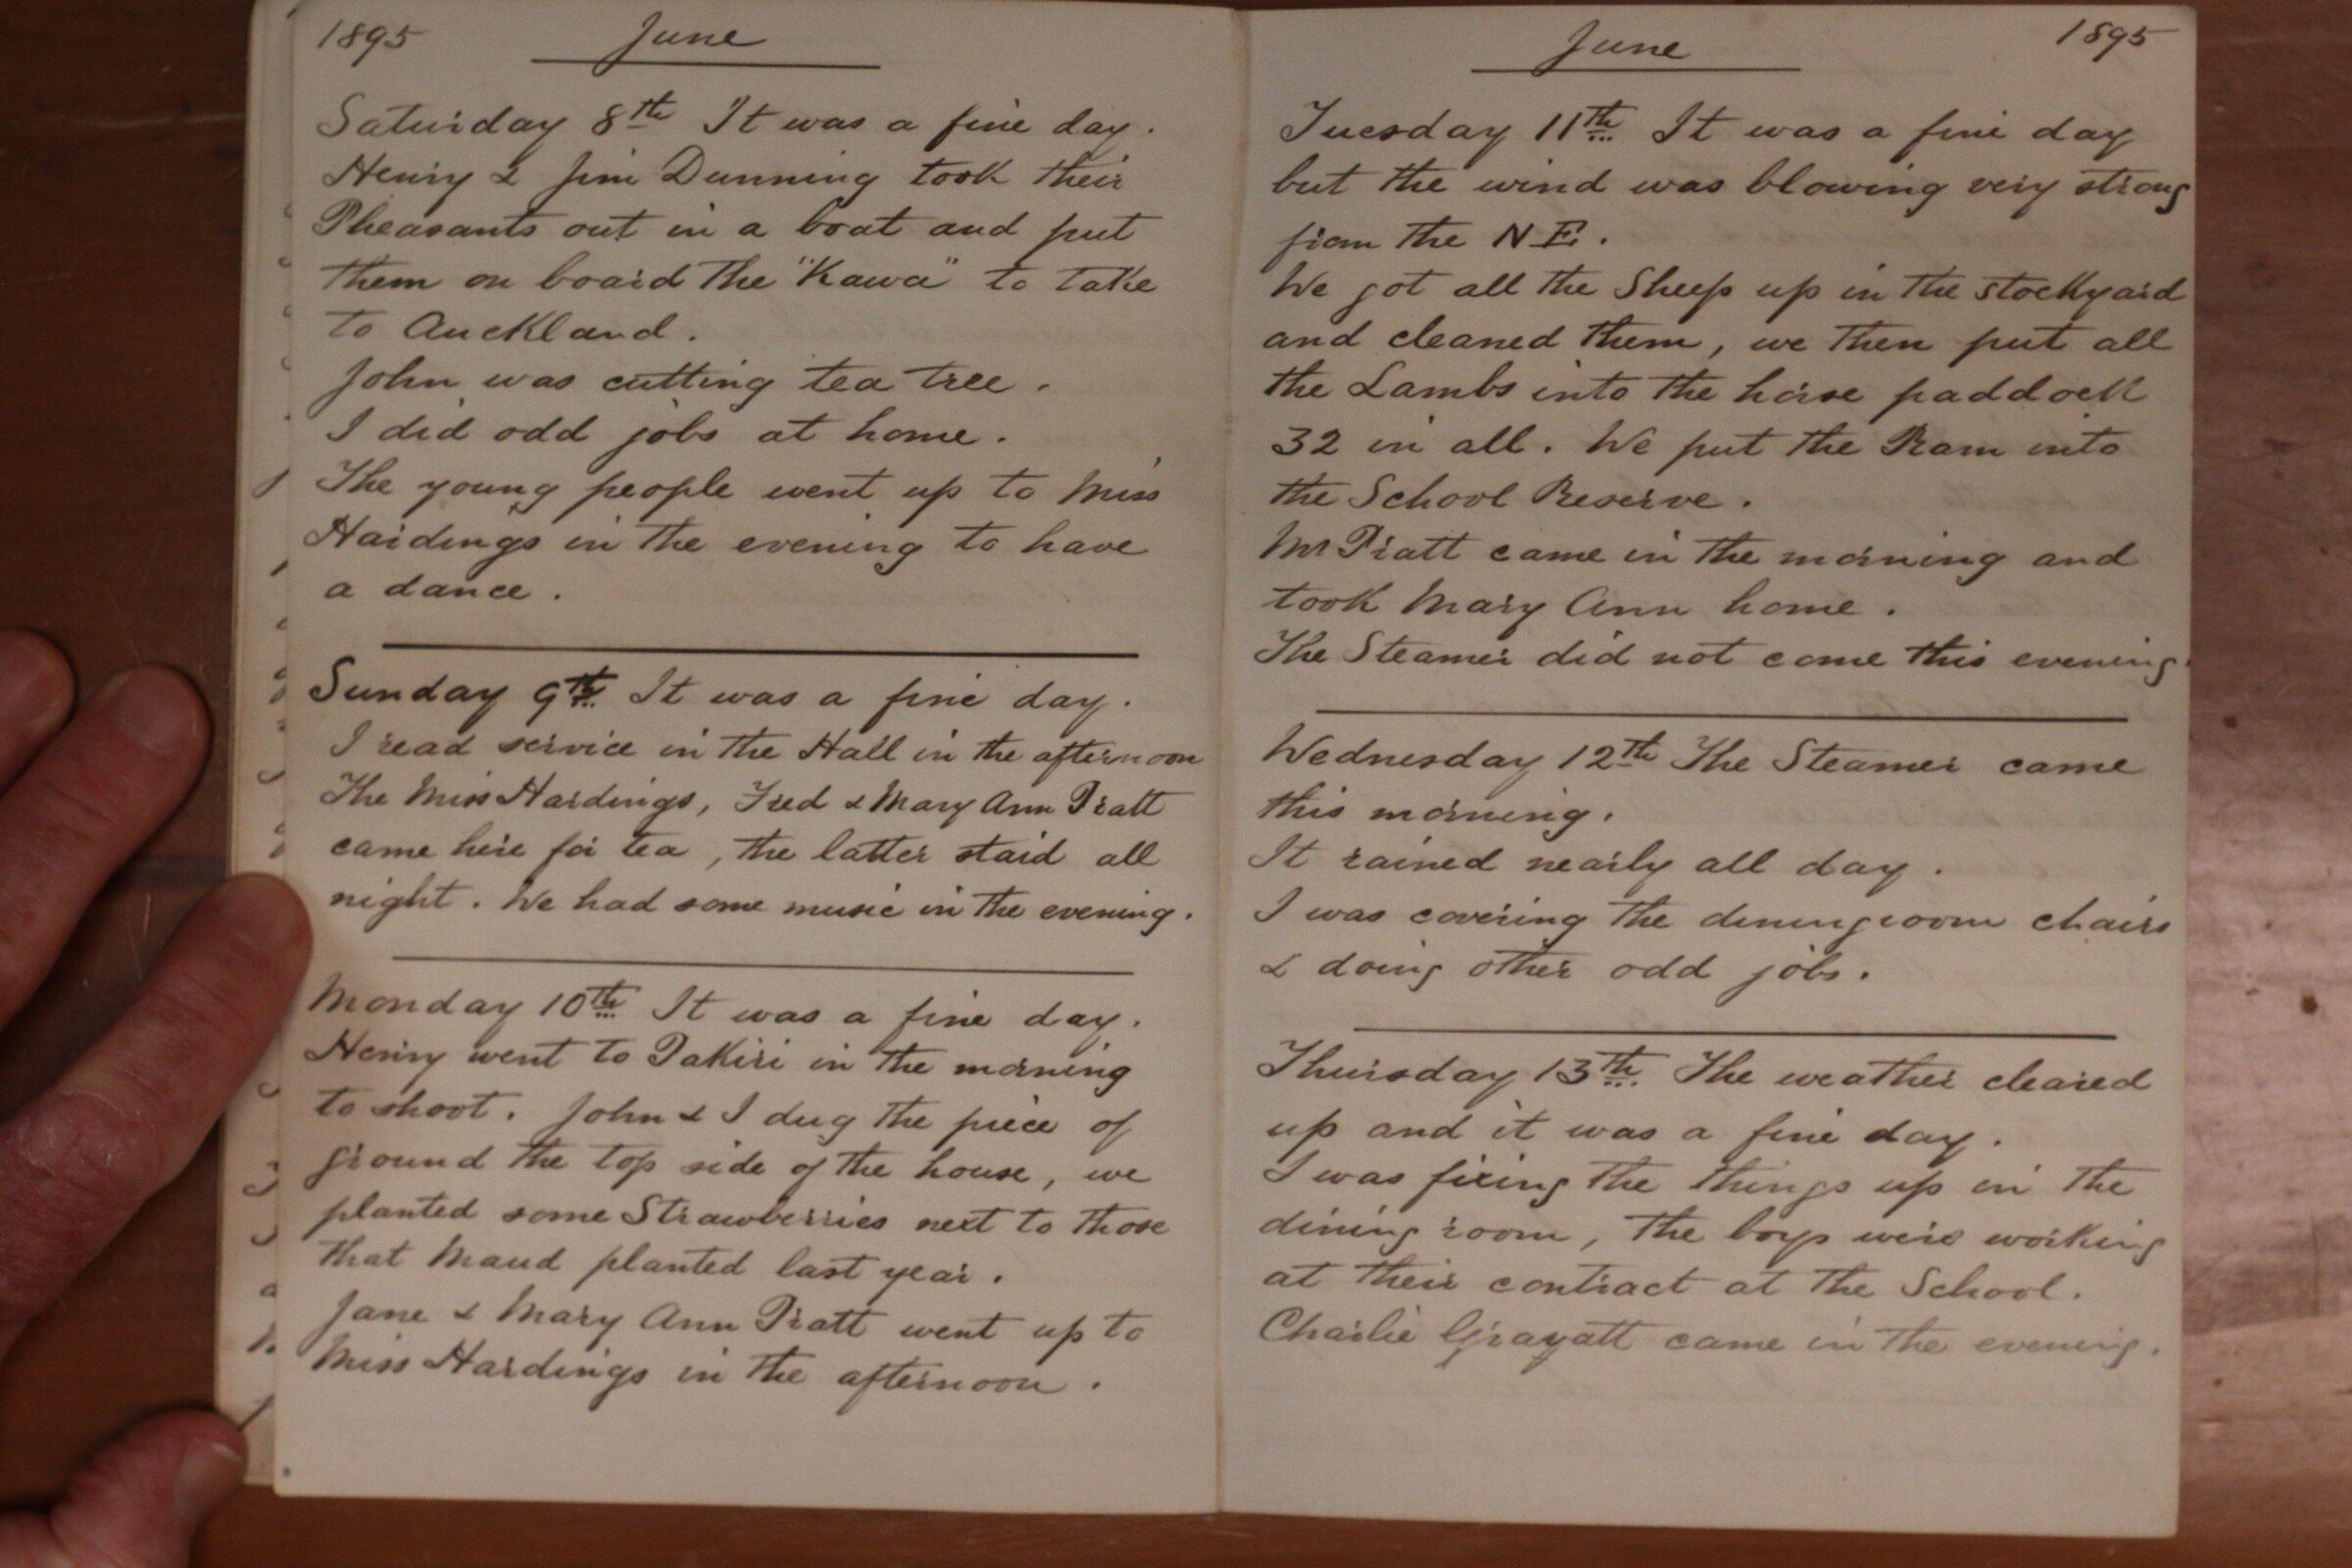 1895 June
Saturday 8th It was a fine day.
Henry & Jim Dunning took their
Pheasants out in a boat and put
them on board the "Kawa" to take
to Auckland.
John was cutting tea tree.
I did odd jobs at home.
The young people went up to Miss
Hardings in the evening to have
a dance.
Sunday 9th It was a fine day.
I read service in the Hall in the afternoon
The Miss Hardings, Fred & Mary Ann Pratt
came here for tea, the latter staid all
night. We had some music in the evening.
Monday 10th It was a fine day.
Henry went to Pakiri in the morning
to shoot. John & I dug the piece of
ground the top side of the house, we
planted some Strawberries next to those
that Maud planted last year.
Jane & Mary Ann Pratt went up to
Miss Hardings in the afternoon.
June 1895
Tuesday 11th It was a fine day
but the wind was blowing very strong
from the N E.
We got all the Sheep up in the stockyard
and cleaned them, we then put all
the Lambs into the horse paddock
32 in all. We put the Ram into
the School Reserve.
Mr Pratt came in the morning and
took Mary Ann home.
The Steamer did not come this evening.
Wednesday 12th The Steamer came
this morning.
It rained nearly all day.
I was covering the diningroom chairs
& doing other odd jobs.
Thursday 13th The weather cleared
up and it was a fine day.
I was fixing the things up in the
dining room, the boys were working
at their contract at the School.
Charlie Grayatt came in the evening.